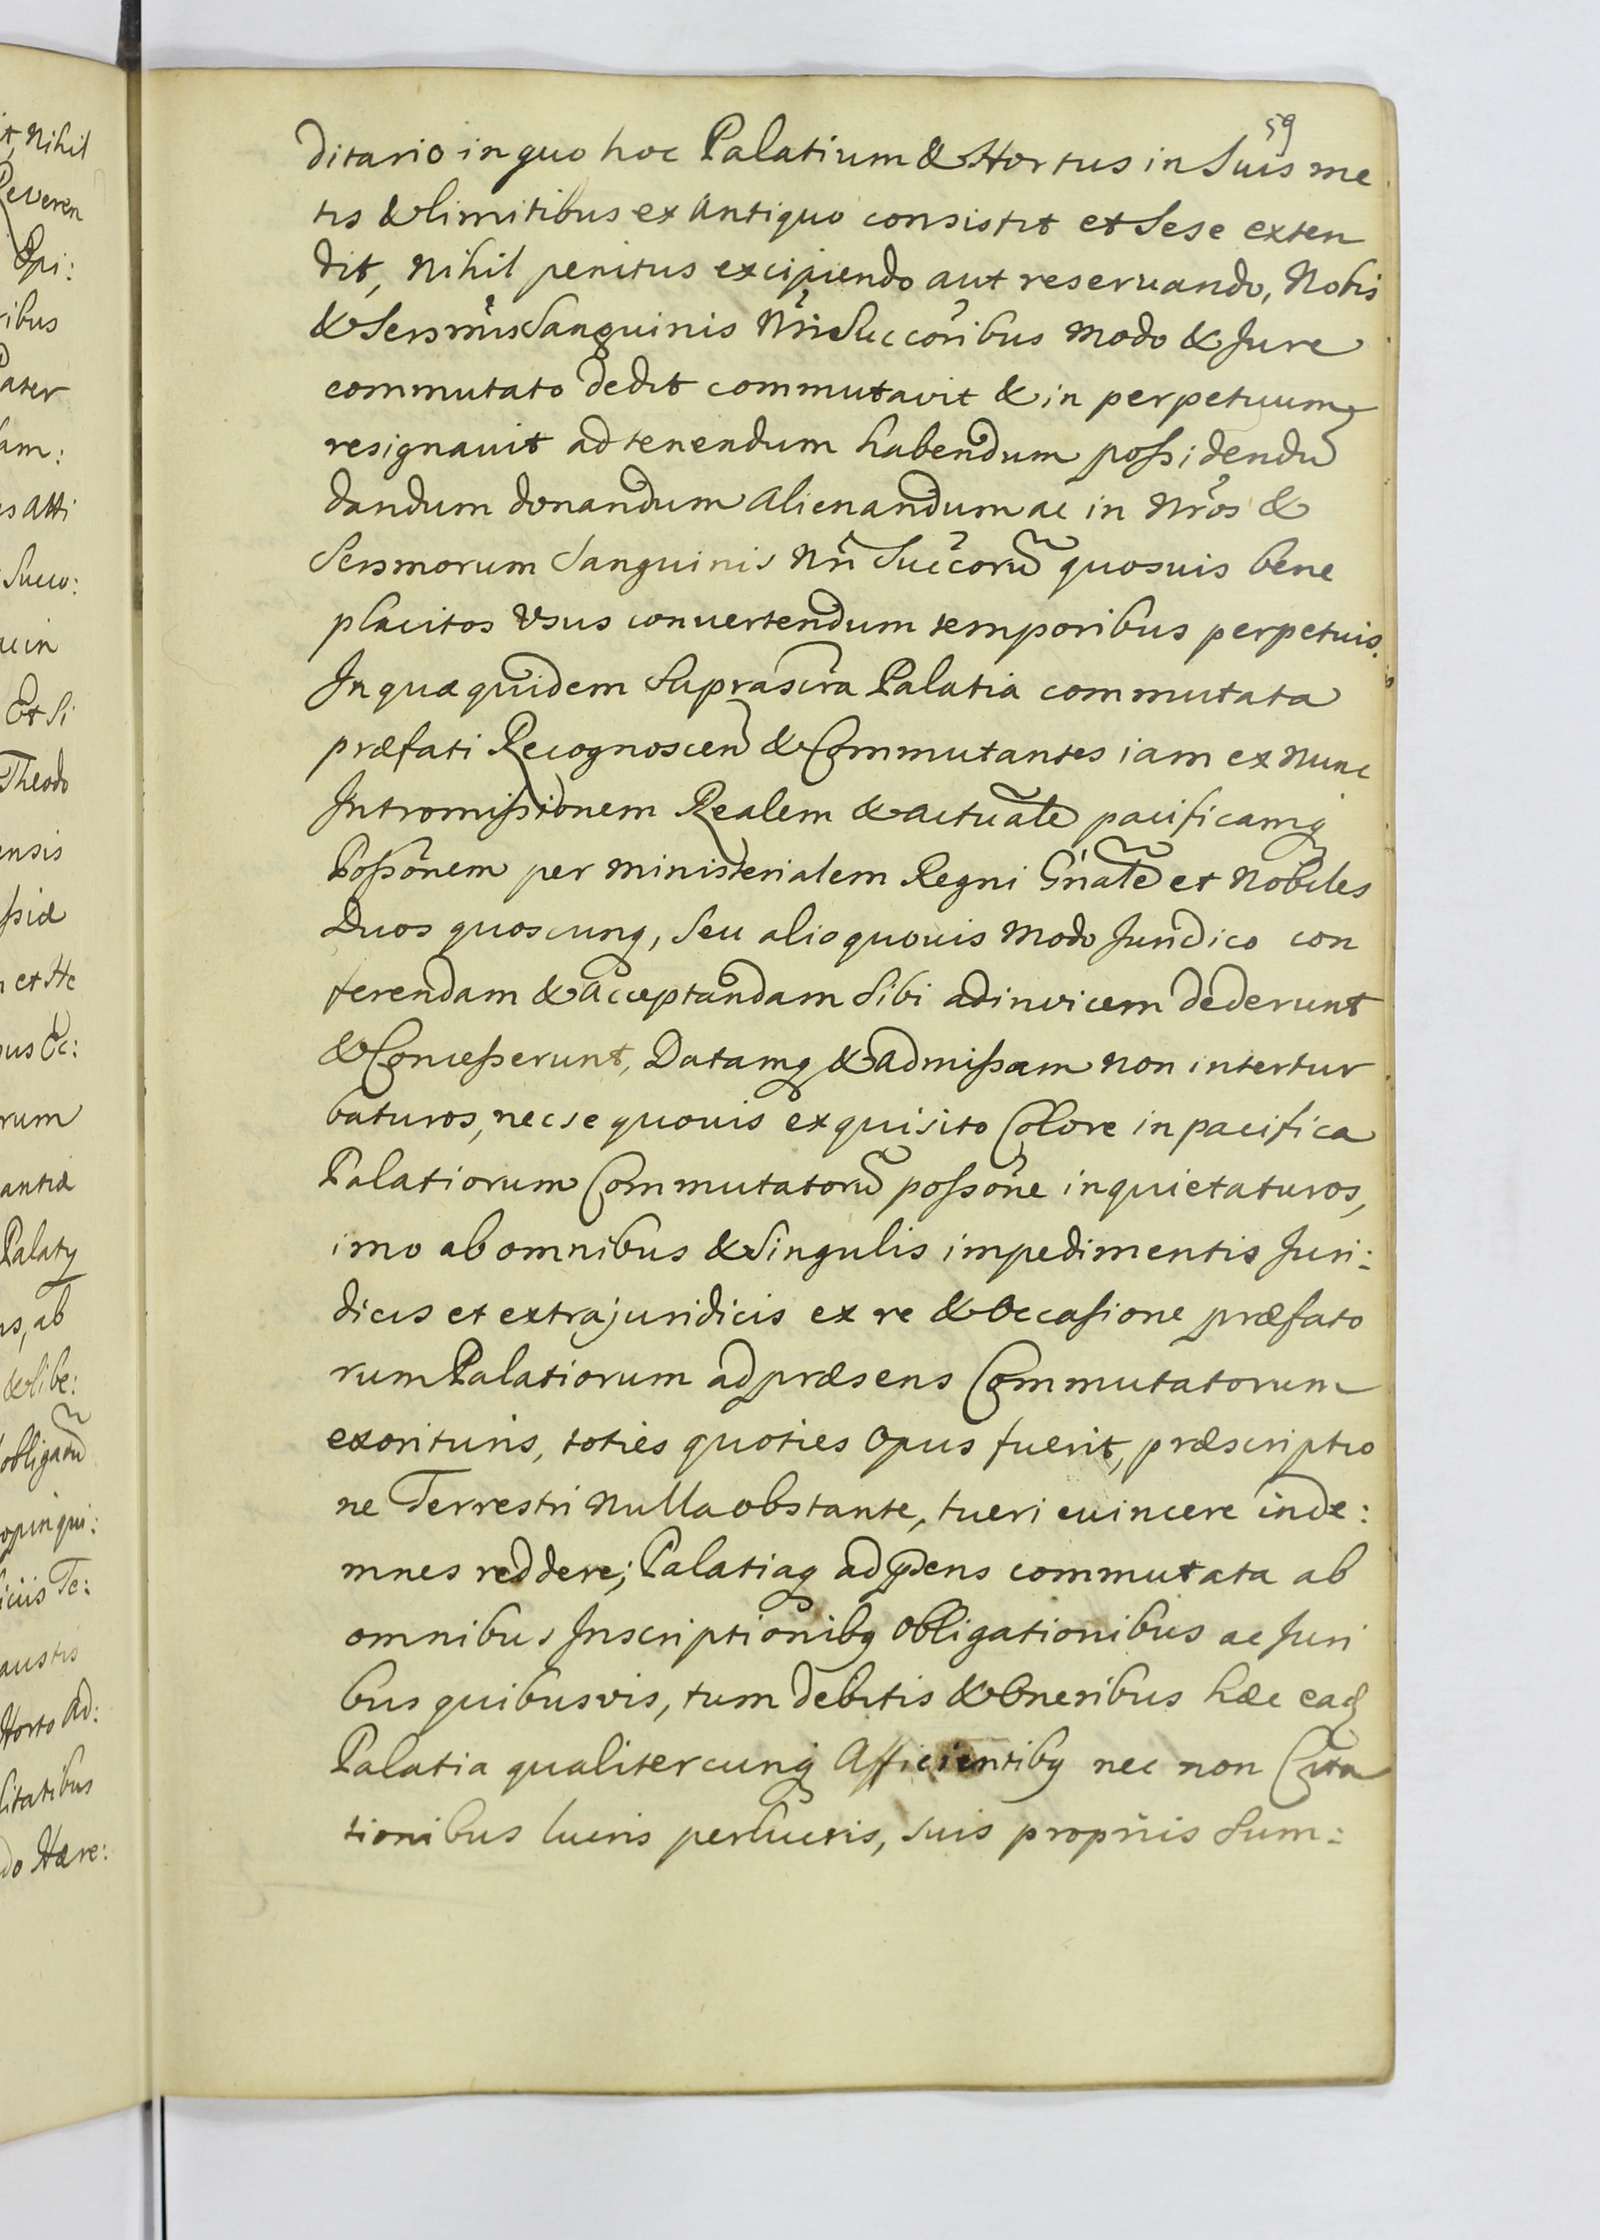 59
ditario in quo hoc Palatium & Hortus in Suis me
tis & limitibus ex Antiquo consistit et Sese exten
dit, Nihil penitus excipiendo aut reseruando, Nobis
& Sersmis Sanguinis Nri Succoribus Modo & Jure
commutato dedit commutavit & in perpetuum
resignauit ad tenendum habendum possidendu
dandum donandum Alienandum ac in Nros &
Sersmorum Sanguinis Nri Succoru quosuis bene
placitos Vsus conuertendum temporibus perpetuis.
In quae quidem Suprascra Palatia commutata
praefati Recognoscen & Commutantes iam ex nunc
Intromissionem Realem & actuale pacificamq
Possonem per Ministerialem Regni Gnale et Nobiles
Duos quoscunq, Seu alio quouis Modo Juridico con
ferendam & Acceptandam Sibi adinvicem dederunt
& Concesserunt, Datamq & admissam non intertur
baturos, nec se quouis exquisito Colore in pacifica
Palatiorum Commutatoru possone inquietaturos,
imo ab omnibus & Singulis impedimentis Juri:
dicis et extrajuridicis ex re & Occasione praefato
rum Palatiorum ad praesens Commutatorum
exorituris, toties quoties Opus fuerit, praescriptio
ne Terrestri Nulla obstante, tueri euincere inde:
mnes reddere; Palatiaq ad psens commutata ab
omnibus Inscriptionibq Obligationibus ac Juri
bus quibusvis, tum debitis & Oneribus haec ead
Palatia qualitercunq Afficientibq nec non Cita
tionibus lucris perlucris, suis propriis Sum: